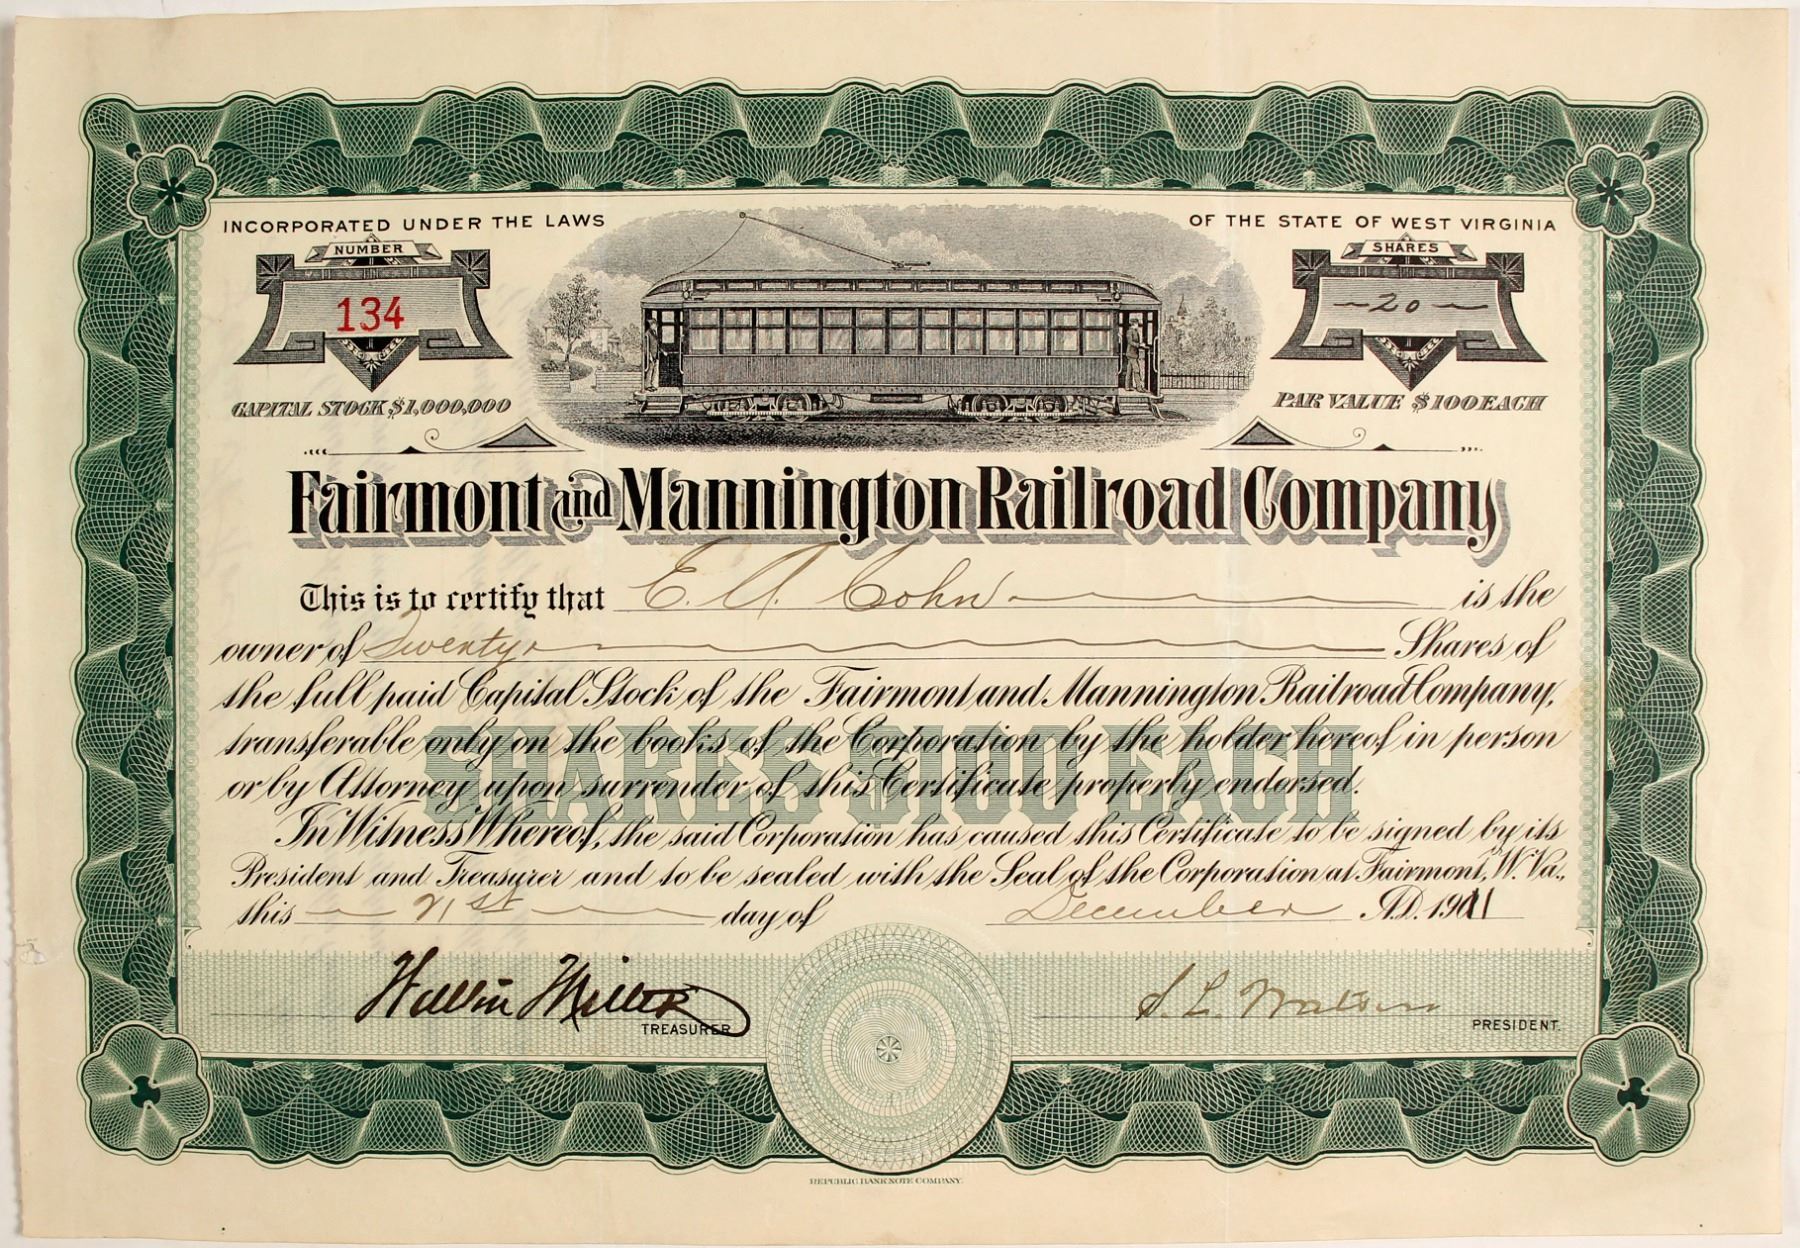 INCORPORATED UNDER THE LAWS OF THE STATE OF WEST VIRGINIA
NUMBER
134
SHARES
20
CAPITAL STOCK $1,000,000
PAR VALUE $100 EACH
Fairmont and Mannington Railroad Company
This is to certify that E. A. Cohn is the
owner of Twenty Shares of
the full paid Capital Stock of the Fairmont and Mannington Railroad Company,
transferable only on the books of the Corporation by the holder hereof in person
or by Attorney upon surrender of this Certificate properly endorsed.
SHARES $100 EACH
In Witness Whereof, the said Corporation has caused this Certificate to be signed by its
President and Treasurer and to be sealed with the Seal of the Corporation at Fairmont, W. Va.,
this 21st day of December A.D. 1911
Miller
TREASURER
S. L. Watson
PRESIDENT.
REPUBLIC BANK NOTE COMPANY.